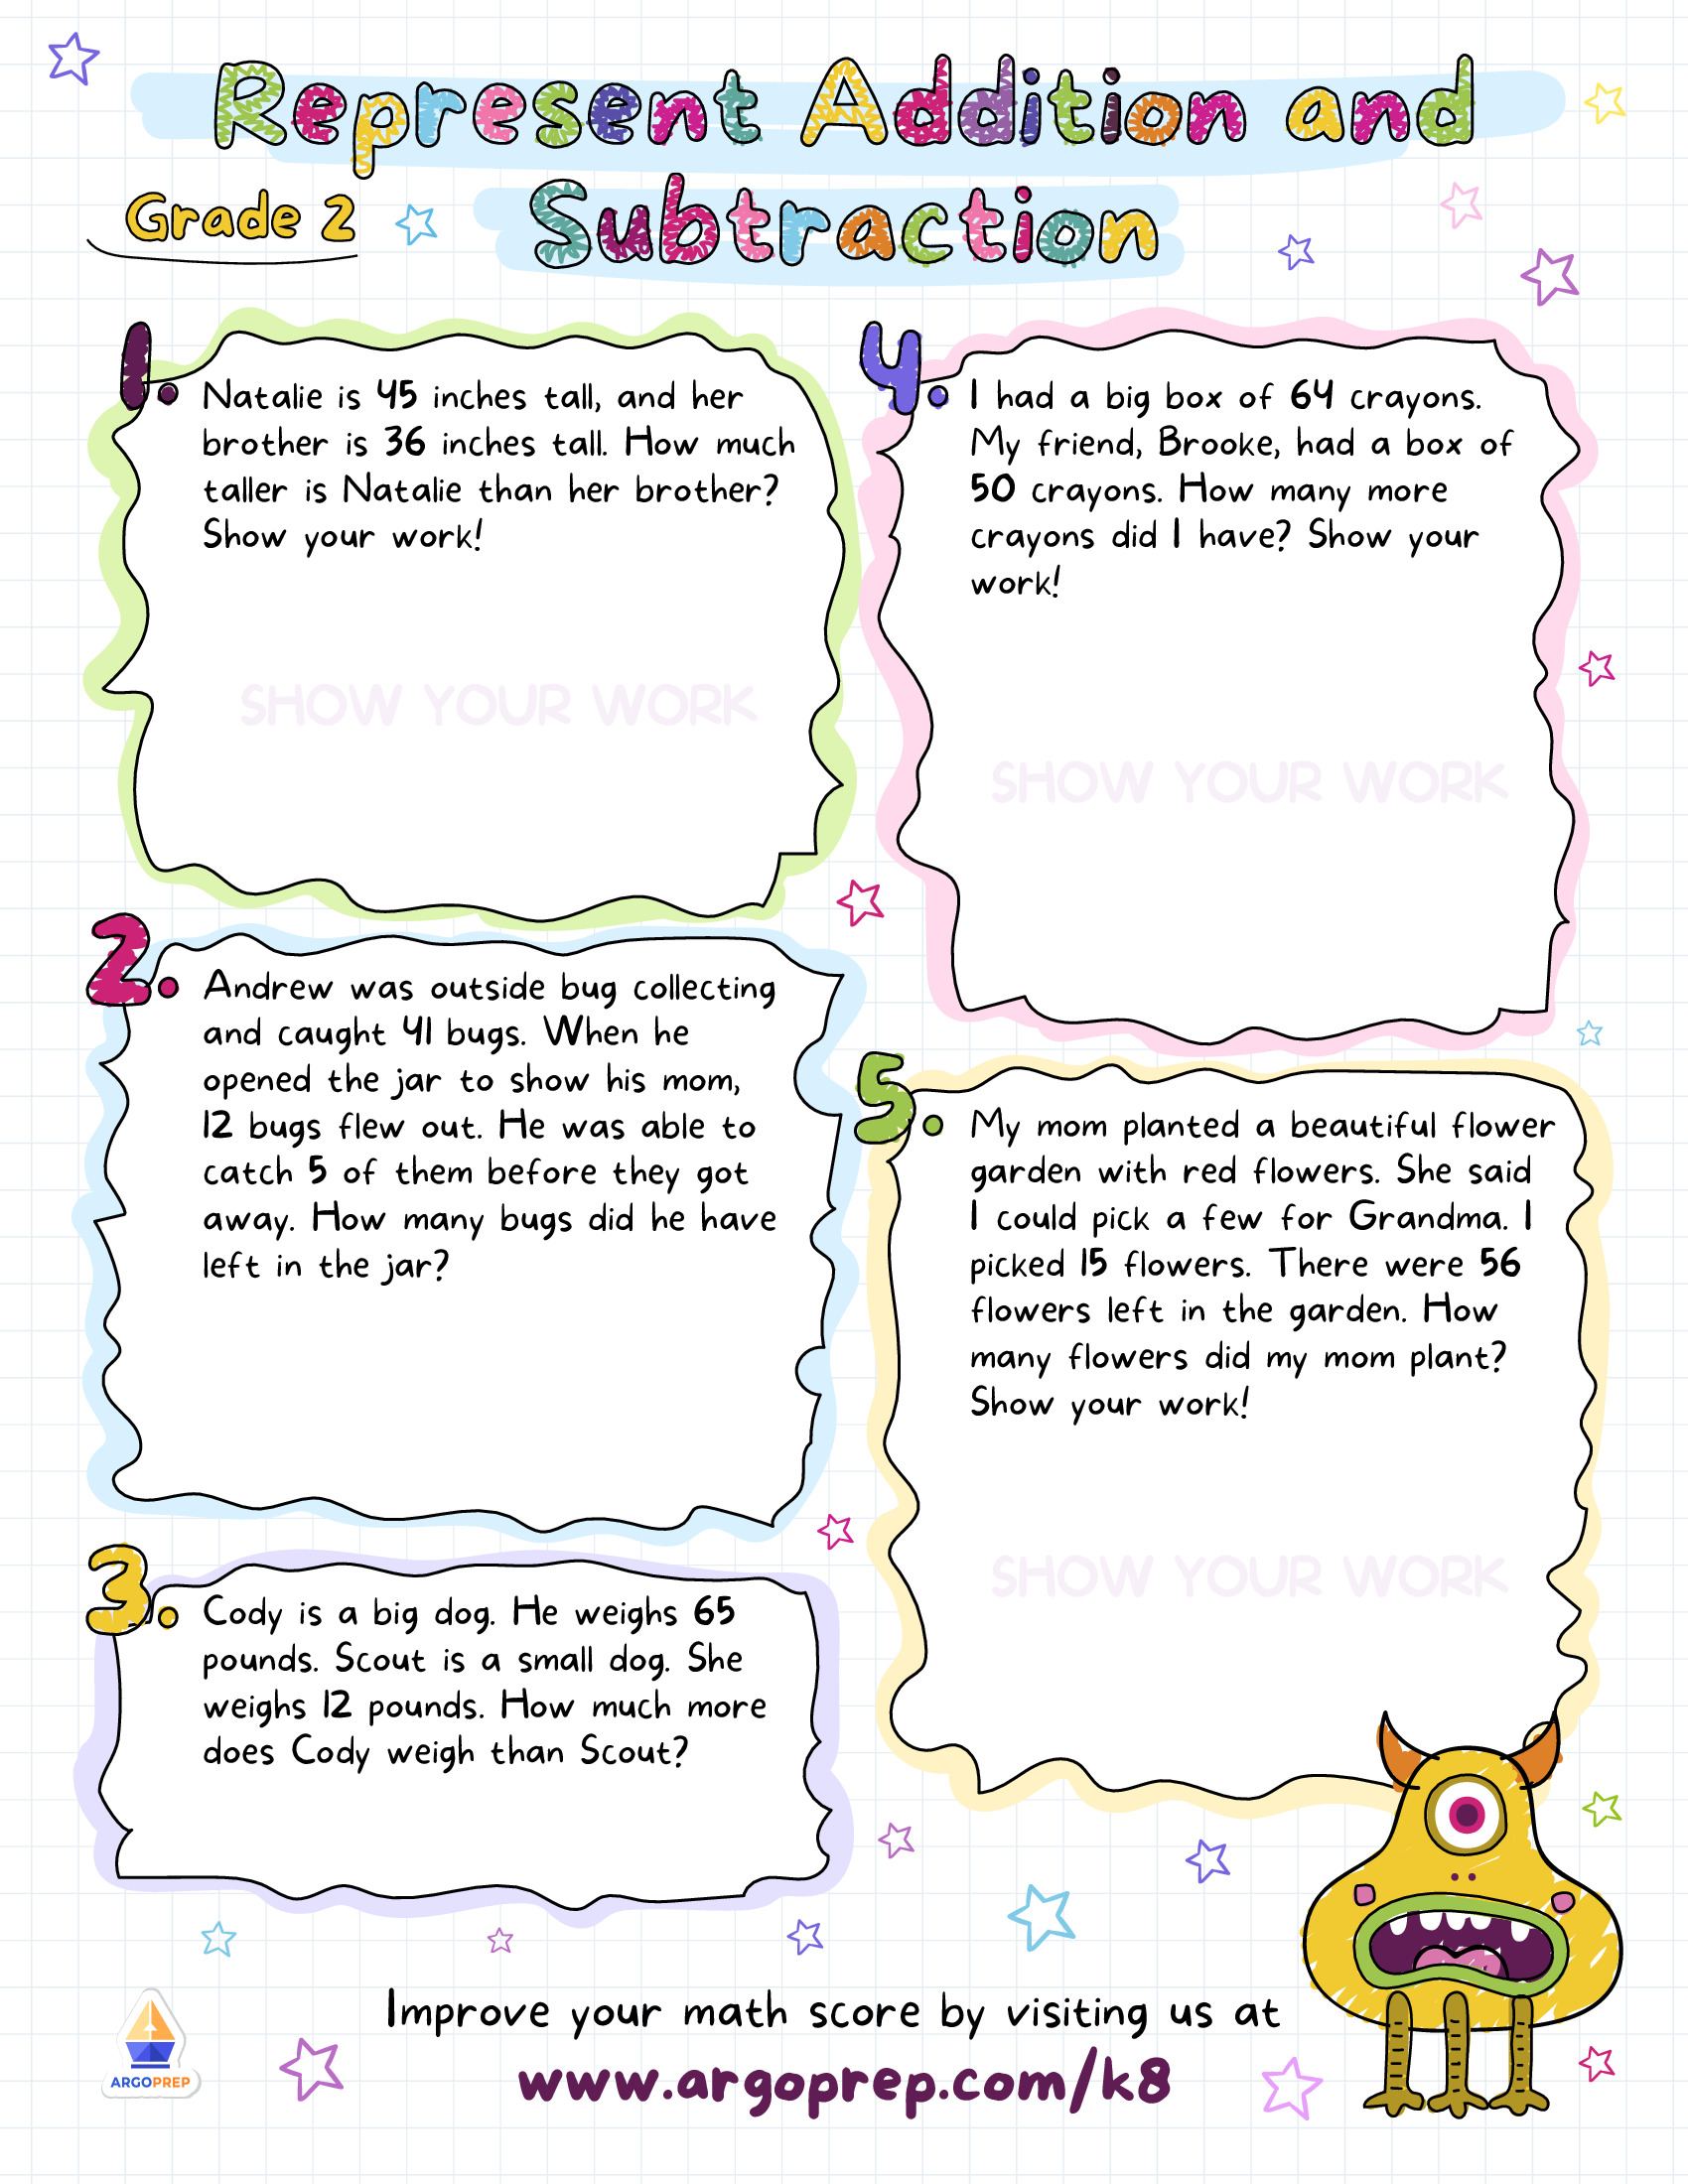 Represent Addition and
Subtraction
Grade 2
1. Natalie is 45 inches tall, and her
brother is 36 inches tall. How much
taller is Natalie than her brother?
Show your work!
SHOW YOUR WORK
2. Andrew was outside bug collecting
and caught 41 bugs. When he
opened the jar to show his mom,
12 bugs flew out. He was able to
catch 5 of them before they got
away. How many bugs did he have
left in the jar?
3. Cody is a big dog. He weighs 65
pounds. Scout is a small dog. She
weighs 12 pounds. How much more
does Cody weigh than Scout?
4. I had a big box of 64 crayons.
My friend, Brooke, had a box of
50 crayons. How many more
crayons did I have? Show your
work!
SHOW YOUR WORK
5. My mom planted a beautiful flower
garden with red flowers. She said
I could pick a few for Grandma. I
picked 15 flowers. There were 56
flowers left in the garden. How
many flowers did my mom plant?
Show your work!
SHOW YOUR WORK
Improve your math score by visiting us at
www.argoprep.com/k8
ARGOPREP